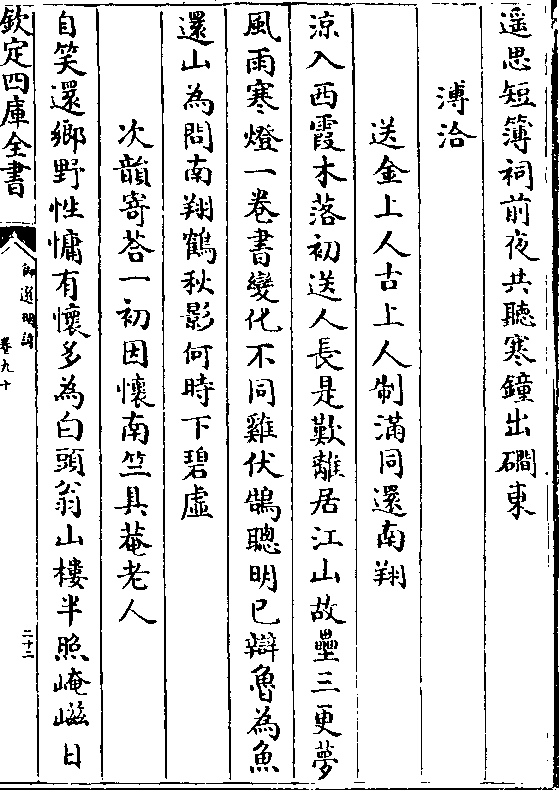 遥思短簿祠前夜共聽寒鐘出磵東
溥洽
送金上人古上人制滿同還南翔
涼入西霞木落初送人長是歎離居江山故壘三更夢
風雨寒燈一卷書變化不同雞伏鵠聰明已辯魯為魚
還山為問南翔鶴秋影何時下碧虛
次韻寄荅一初因懷南竺具菴老人
自笑還鄉野性慵有懷多為白頭翁山樓半照崦嵫日
欽定四庫全書
御選明詩
卷九十
二十二